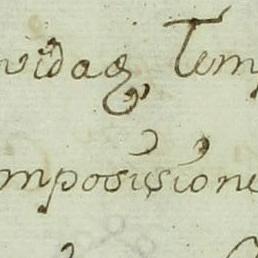 vidaq, Tem
mposisione